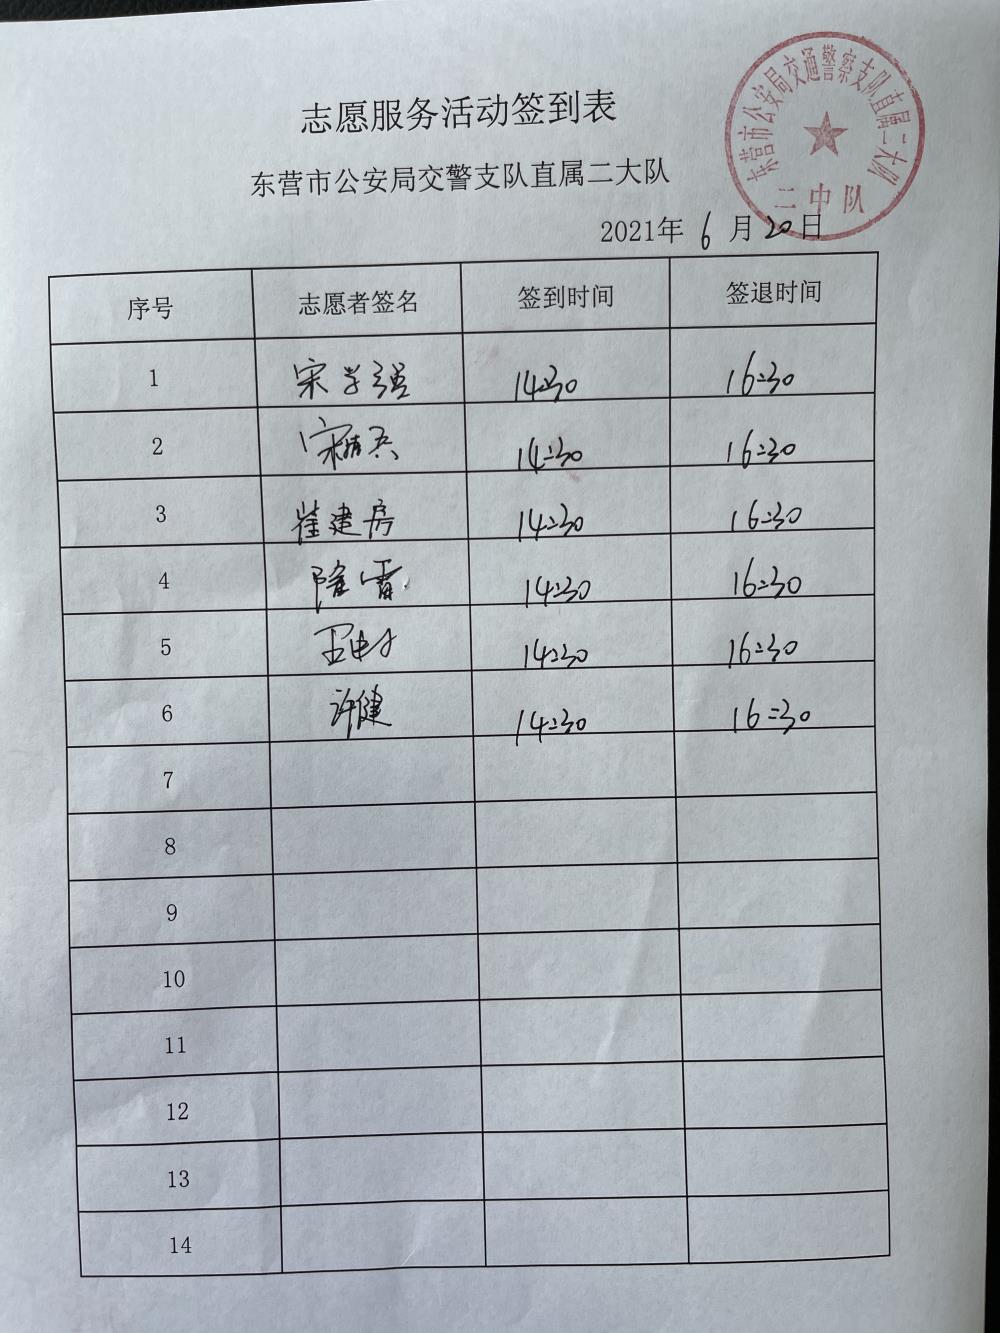 东营市公安局交通警察支队直属二大队
二中队
志愿服务活动签到表
东营市公安局交警支队直属二大队
2021年 6 月 20 日
序号 志愿者签名 签到时间 签退时间
1 宋学强 14:30 16:30
2 宋 14:30 16:30
3 崔建房 14:30 16:30
4 隆雷 14:30 16:30
5 14:30 16:30
6 许健 14:30 16:30
7
8
9
10
11
12
13
14